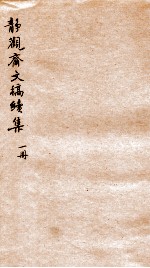 靜觀齋文稿續集
一冊